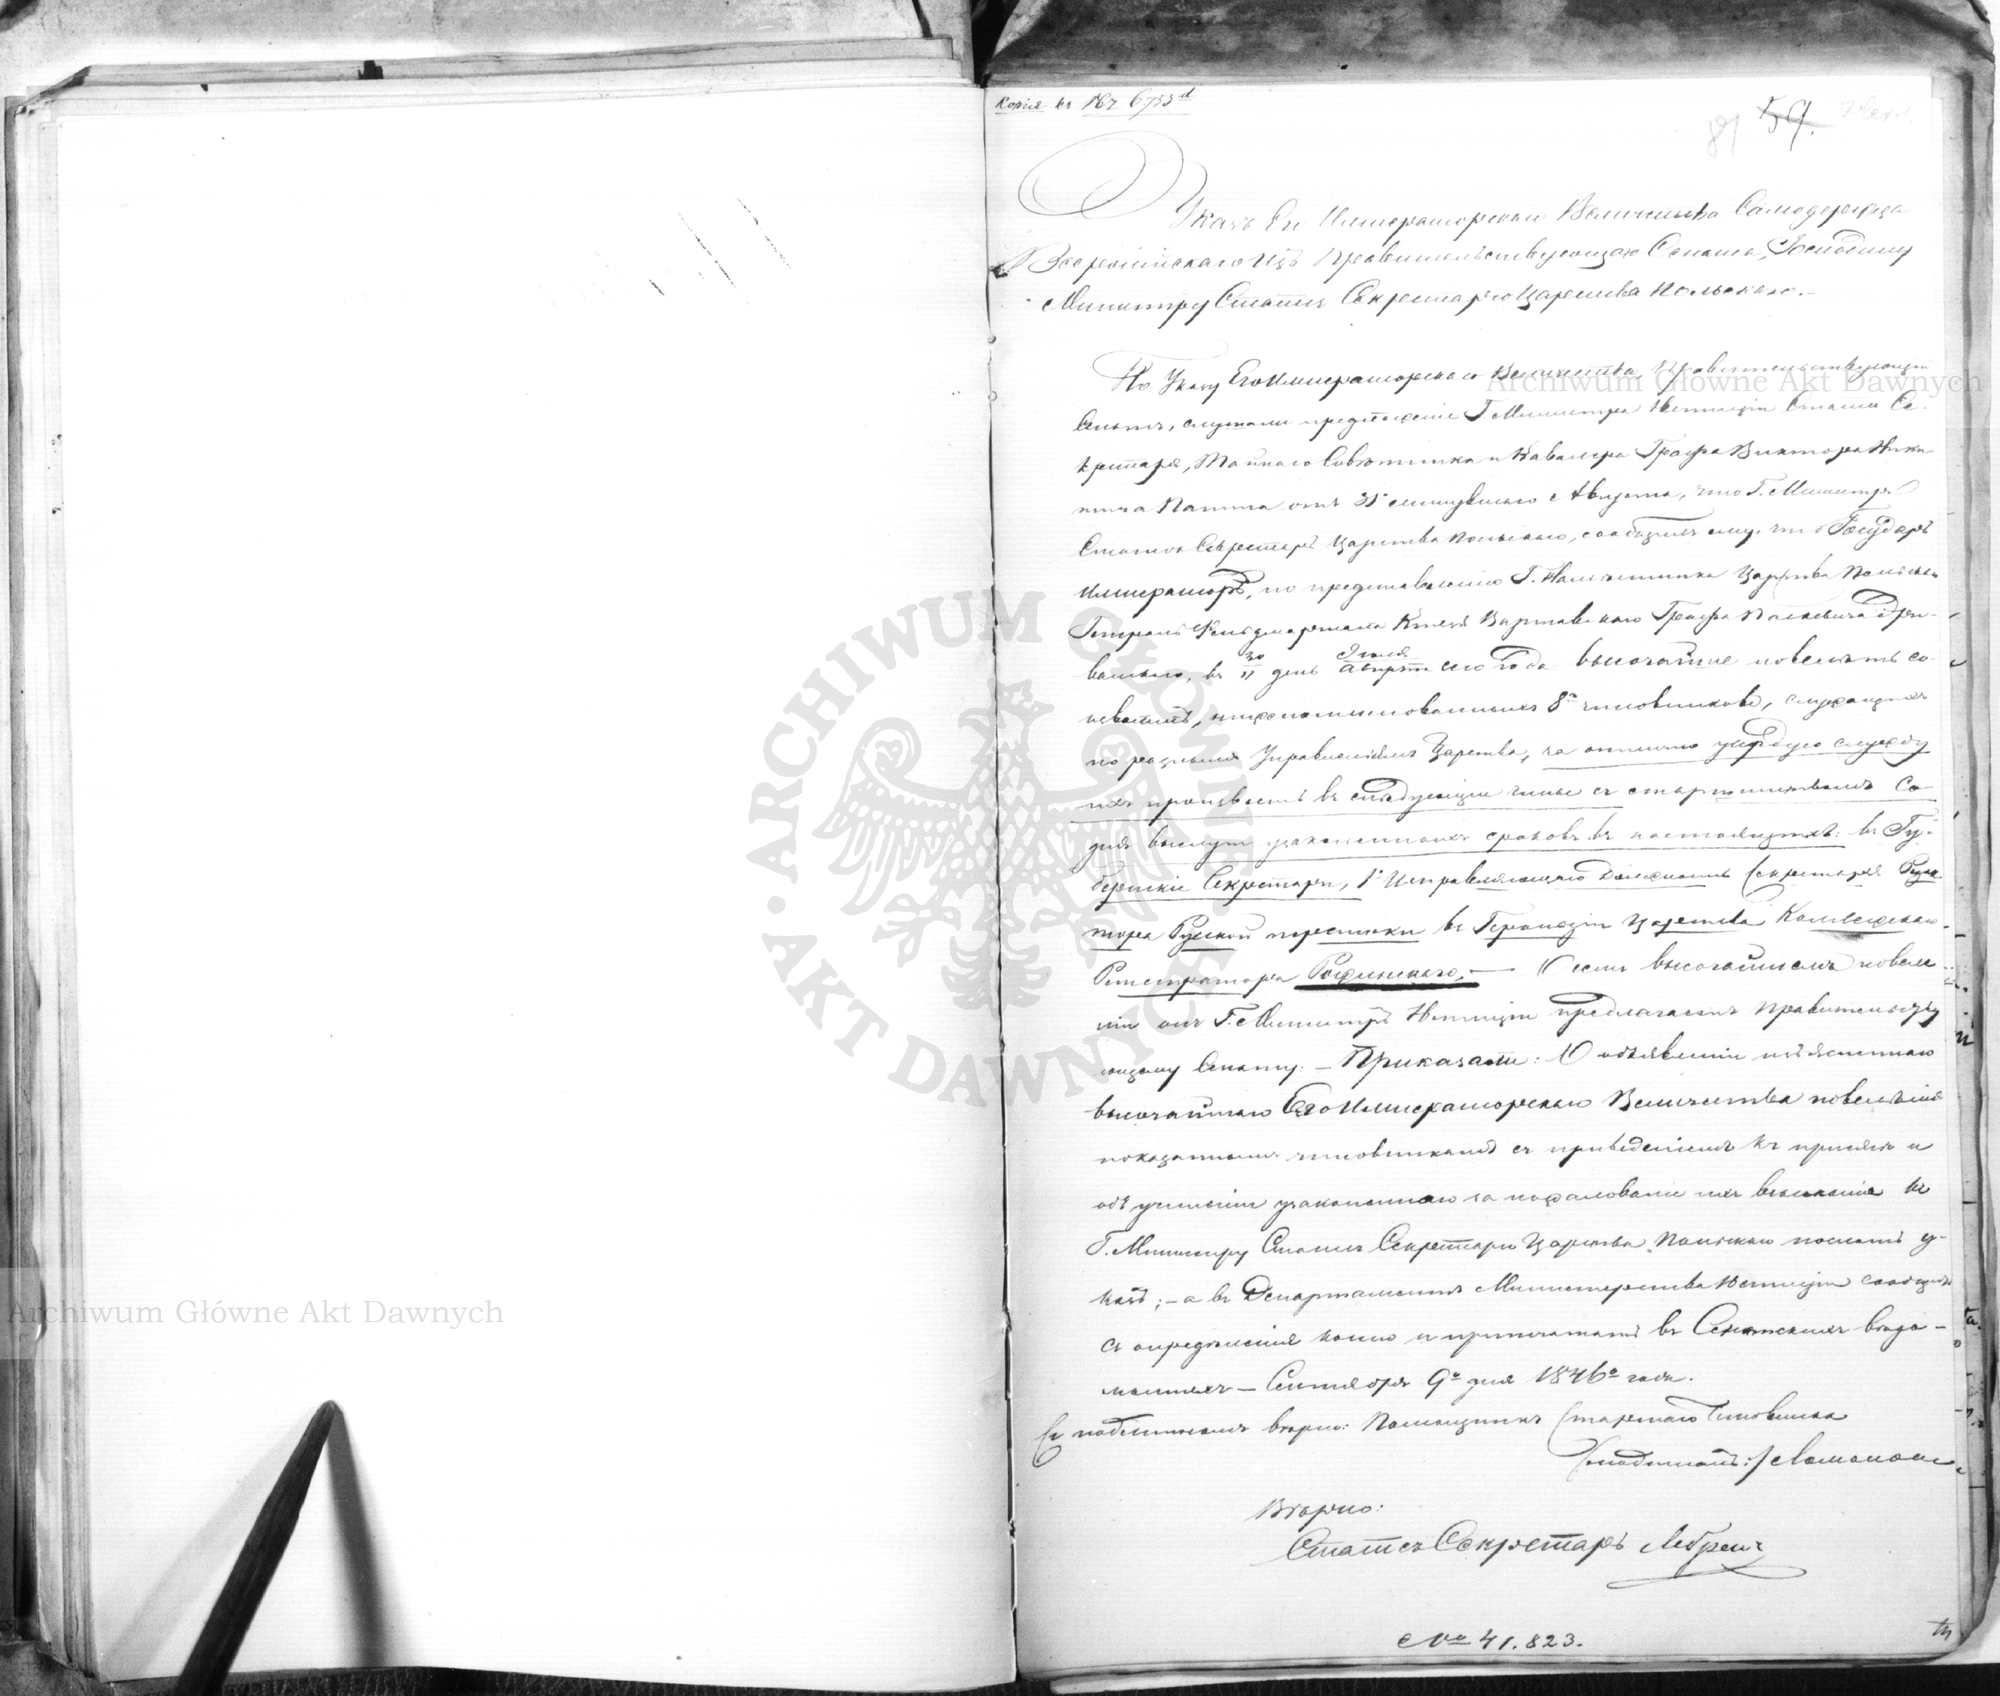 Копія къ № 6753d
59.
Указъ Его Императорскаго Величества Самодержца
Всероссійскаго изъ Правительствующаго Сената, Господину
Министру Статсъ Секретарю Царства Польскаго.-
По Указу Его Императорскаго Величества, Правительствующій
Сенатъ, слушали предложеніе Г. Министра Юстиціи Статсъ Се-
кретаря, Тайнаго Совѣтника и Кавалера Графа Виктора Ники
тича Панина отъ 31 минувшаго Августа, что Г. Министръ
Статсъ Секретарь Царства Польскаго, сообщилъ ему, что Государь
Императоръ, по представленію Г. Намѣстника Царства Польскаго
Генералъ Фельдмаршала Князя Варшавскаго Графа Паскевича Эри-
ванскаго, въ 30/11 день Іюля/Августа сего года Высочайше повелѣть со-
изволилъ, нижепоименованныхъ 8 чиновниковъ, служащихъ
по разнымъ Управленіямъ Царства, за отлично усердную службу
ихъ произвесть въ слѣдующіе чины съ старшинствомъ со
дня выслуги узаконенныхъ сроковъ въ настоящихъ: въ Гу-
бернскіе Секретари, 1, Исправляющаго Должность Секретаря Редак
тора Русской переписки въ Герольдіи Царства Коллежскаго
Регистратора . — О семъ Высочайшемъ повелѣ
ніи онъ Г. Министръ Юстиціи предлагаетъ Правительству
ющему Сенату. — Приказали: О объявленіи изъясненнаго
Высочайшаго Его Императорскаго Величества повелѣнія
показаннымъ чиновникамъ съ приведеніемъ къ присягѣ и
объ учиненіи узаконеннаго за пожалованіе ихъ взысканія къ
Г. Министру Статсъ Секретарю Царства Польскаго послать у-
казъ; — а въ Департаментъ Министерства Юстиціи сообщить
съ опредѣленія копію и припечатать въ Сенатскихъ вѣдо-
мостяхъ — Сентября 9го дня 1846го года.
Съ подлиннымъ вѣрно: Помощникъ Старшаго Чиновника
Вѣрно:
Статсъ Секретарь Лебренъ
№ 41.823.
Archiwum Główne Akt Dawnych
Archiwum Główne Akt Dawnych
ARCHIWUM GŁÓWNE · AKT DAWNYCH ·